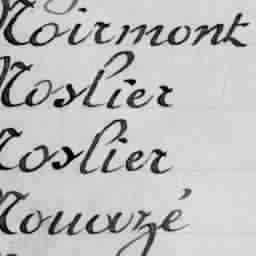 Noirmont
Noslier
Noslier
Nouazé